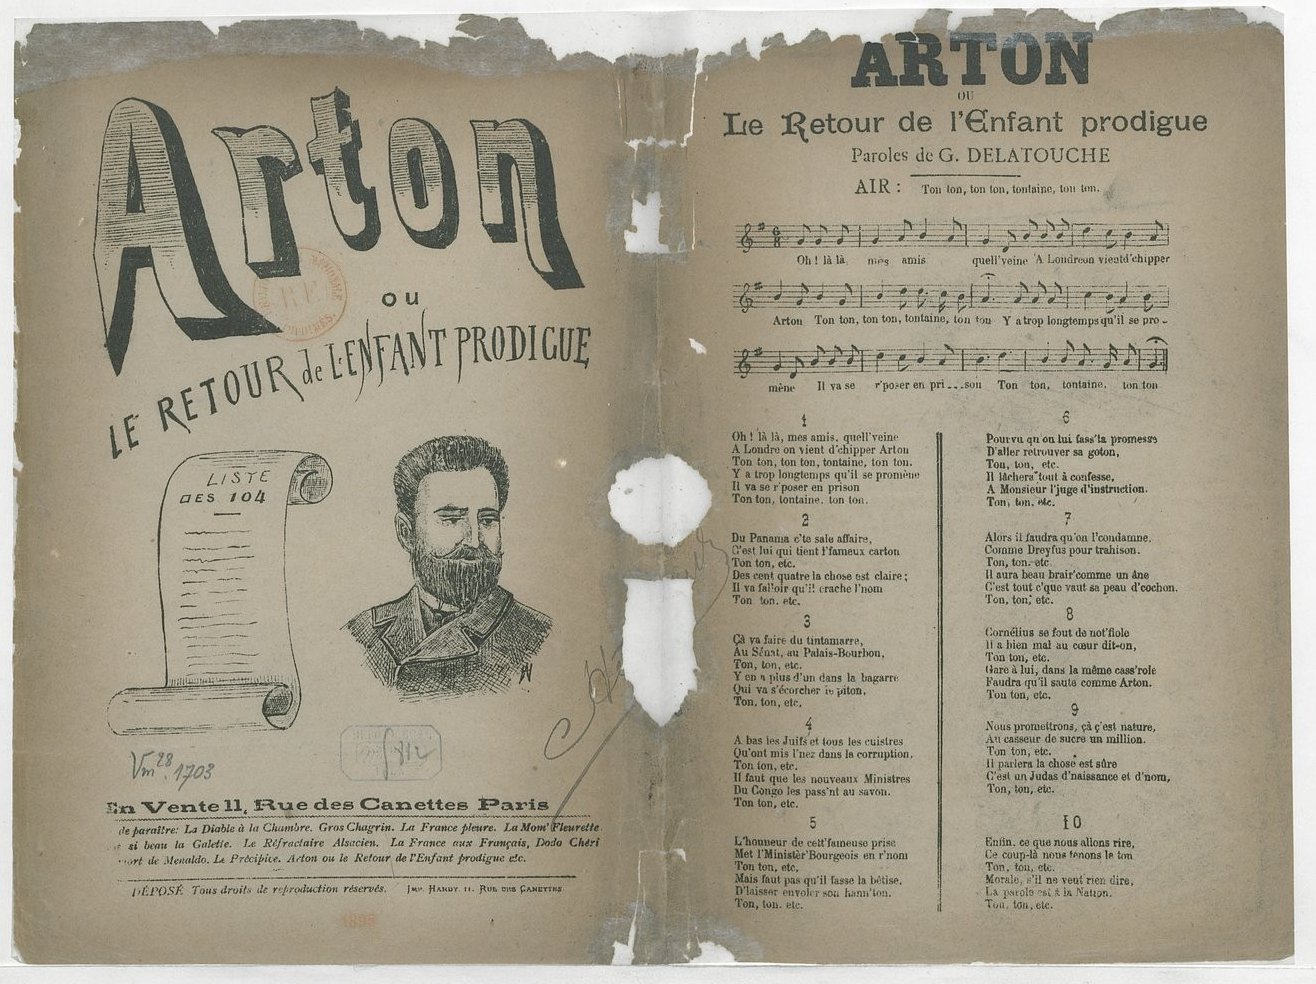 Arton
ou
LE RETOUR de L'ENFANT PRODIGUE
LISTE
DES 104
AN
Vm 28 1703
En Vente 11, Rue des Canettes Paris
de paraître: La Diable à la Chambre. Gros Chagrin. La France pleure. La Mom' Fleurette.
si beau la Galette. Le Réfractaire Alsacien. La France aux Français, Dodo Chéri
ort de Menaldo. Le Précipice. Arton ou le Retour de l'Enfant prodigue etc.
DÉPOSÉ Tous droits de reproduction réservés. IMP. HARDY. 11. RUE DES CANETTES
1895
ARTON
OU
Le Retour de l'Enfant prodigue
Paroles de G. DELATOUCHE
AIR : Ton ton, ton ton, tontaine, ton ton.
Oh ! là là, mes amis quell'veine A Londreon vientd'chipper
Arton Ton ton, ton ton, tontaine, ton ton Y a trop longtemps qu'il se pro-
mène Il va se r'poser en pri...son Ton ton, tontaine, ton ton
1
Oh ! là là, mes amis, quell'veine
A Londre on vient d'chipper Arton
Ton ton, ton ton, tontaine, ton ton.
Y a trop longtemps qu'il se promène
Il va se r'poser en prison
Ton ton, tontaine, ton ton.
2
Du Panama c'te sale affaire,
C'est lui qui tient l'fameux carton
Ton ton, etc.
Des cent quatre la chose est claire ;
Il va falloir qu'il crache l'nom
Ton ton, etc.
3
Çà va faire du tintamarre,
Au Sénat, au Palais-Bourbon,
Ton, ton, etc.
Y en a plus d'un dans la bagarre
Qui va s'écorcher le piton,
Ton, ton, etc,
4
A bas les Juifs et tous les cuistres
Qu'ont mis l'nez dans la corruption,
Ton ton, etc.
Il faut que les nouveaux Ministres
Du Congo les pass'nt au savon.
Ton ton, etc,
5
L'honneur de cett'fameuse prise
Met l'Ministèr'Bourgeois en r'nom
Ton ton, etc,
Mais faut pas qu'il fasse la bêtise,
D'laisser envoler son hann'ton.
Ton, ton, etc.
6
Pourvu qu'on lui fass'la promesse
D'aller retrouver sa goton,
Ton, ton, etc.
Il lâchera tout à confesse,
A Monsieur l'juge d'instruction.
Ton, ton, etc.
7
Alors il faudra qu'on l'condamne,
Comme Dreyfus pour trahison.
Ton, ton, etc
Il aura beau brair'comme un âne
C'est tout c'que vaut sa peau d'cochon.
Ton, ton, etc.
8
Cornélius se fout de not'fiole
Il a bien mal au cœur dit-on,
Ton ton, etc.
Gare à lui, dans la même cass'role
Faudra qu'il saute comme Arton.
Ton ton, etc.
9
Nous promettrons, çà c'est nature,
Au casseur de sucre un million.
Ton ton, etc.
Il parlera la chose est sûre
C'est un Judas d'naissance et d'nom,
Ton, ton, etc,
10
Enfin, ce que nous allons rire,
Ce coup-là nous tenons le ton
Ton, ton, etc.
Morale, s'il ne veut rien dire,
La parole est à la Nation.
Ton, ton, etc.